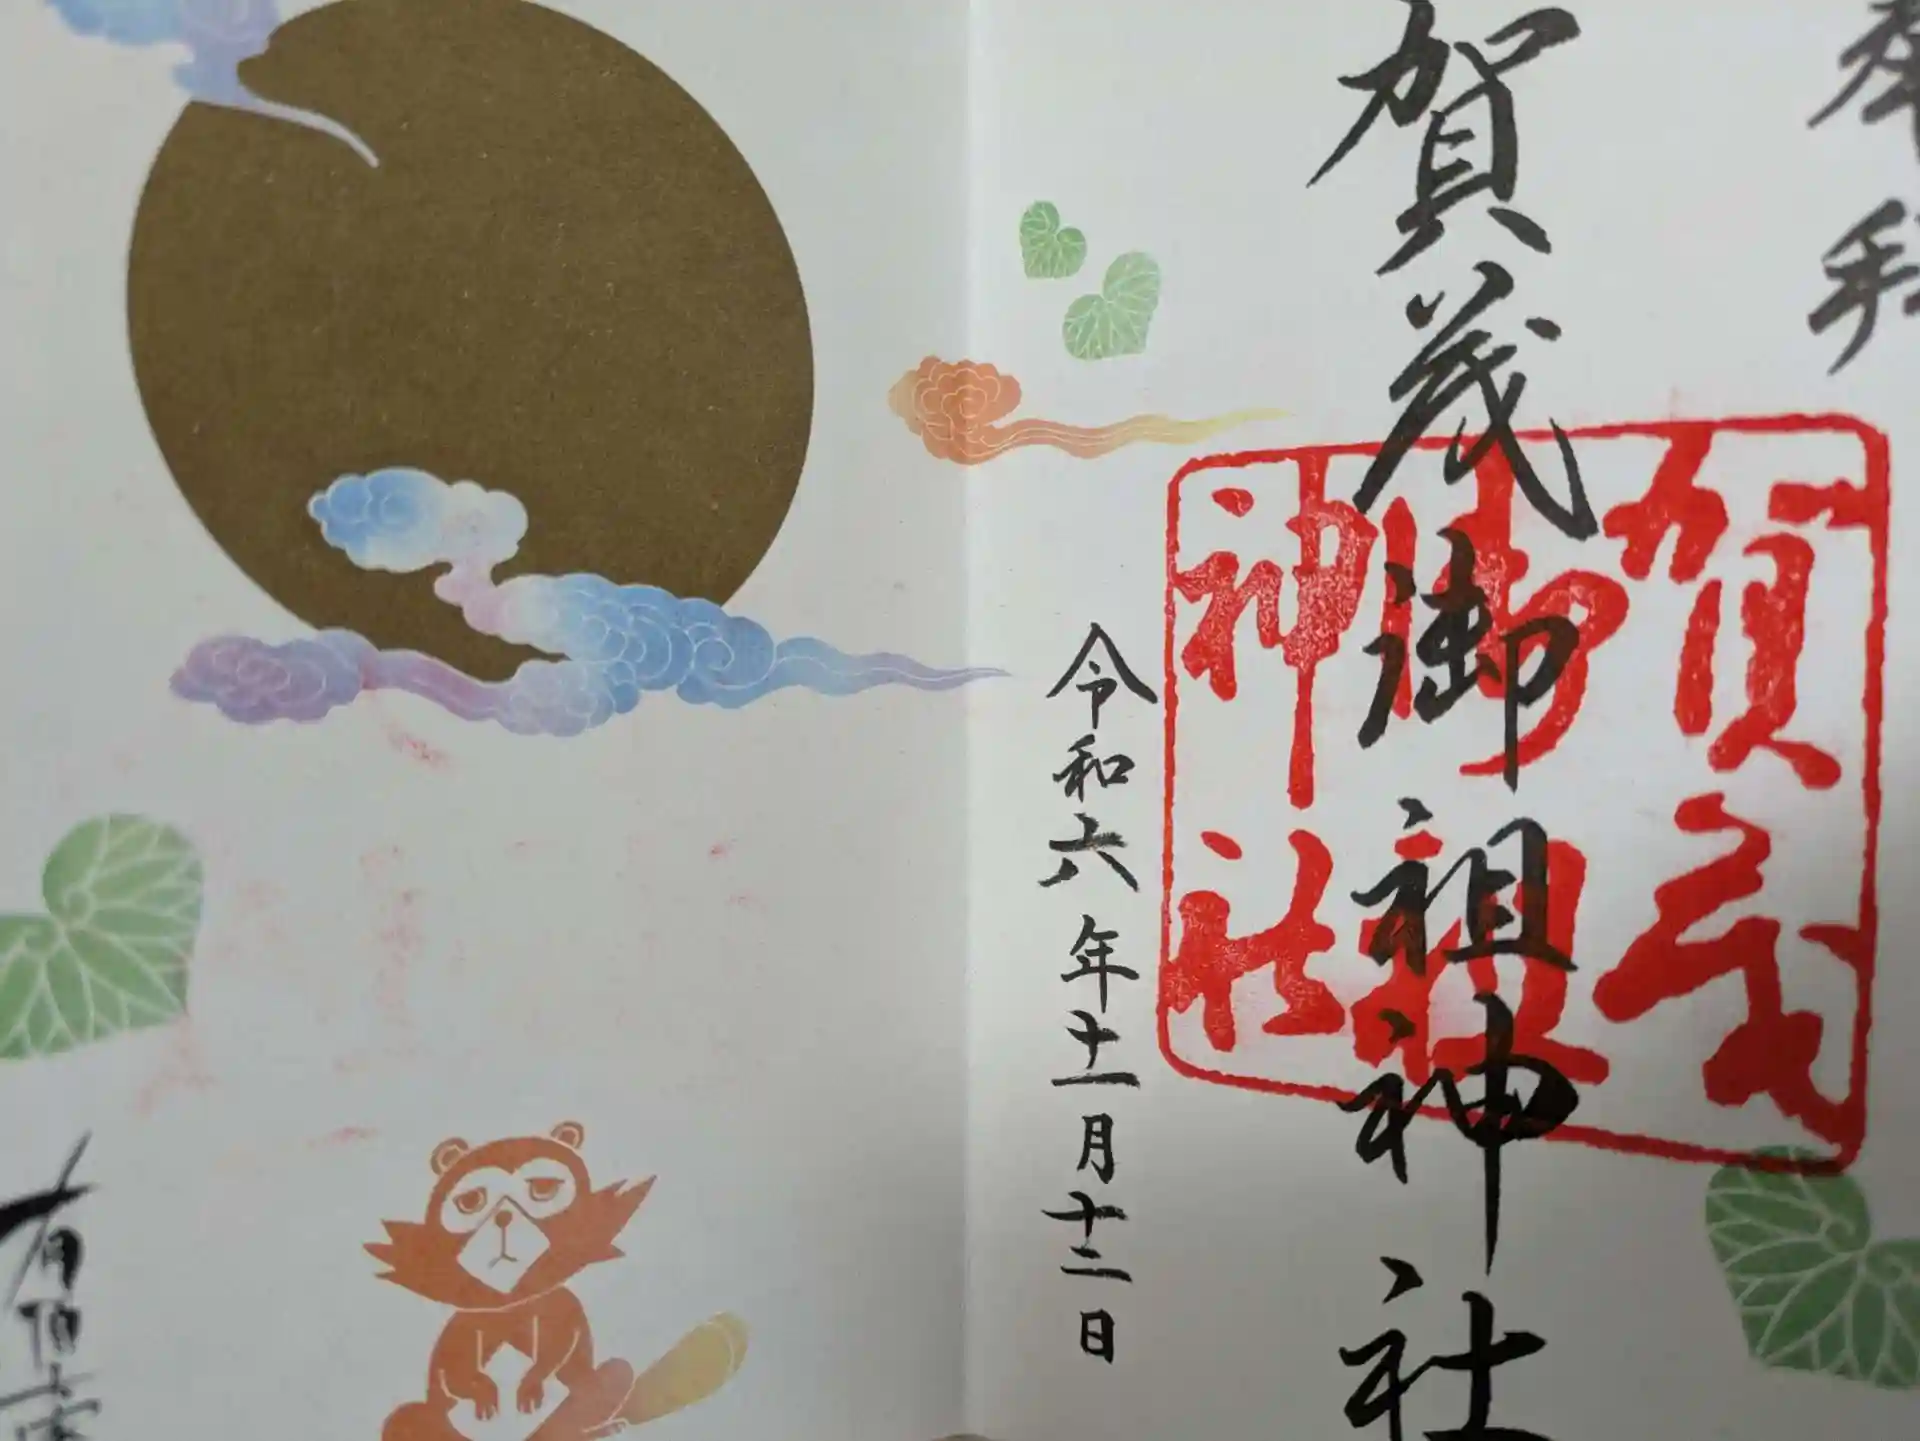 奉拝
賀茂御祖神社
賀茂
御祖
神社
令和六年十一月十二日